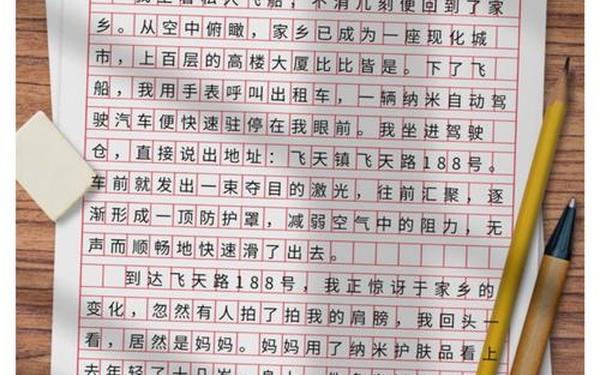 我坐着私人飞船，不消几刻便回到了家
乡。从空中俯瞰，家乡已成为一座现化城
市，上百层的高楼大厦比比皆是。下了飞
船，我用手表呼叫出租车，一辆纳米自动驾
驶汽车便快速驻停在我眼前。我坐进驾驶
仓，直接说出地址：飞天镇飞天路188号。
车前就发出一束夺目的激光，往前汇聚，逐
渐形成一顶防护罩，减弱空气中的阻力，无
声而顺畅地快速滑了出去。
到达飞天路188号，我正惊讶于家乡的
变化，忽然有人拍了拍我的肩膀，我回头一
看，居然是妈妈。妈妈用了纳米护肤品看上
去年轻了十几岁，身上一件